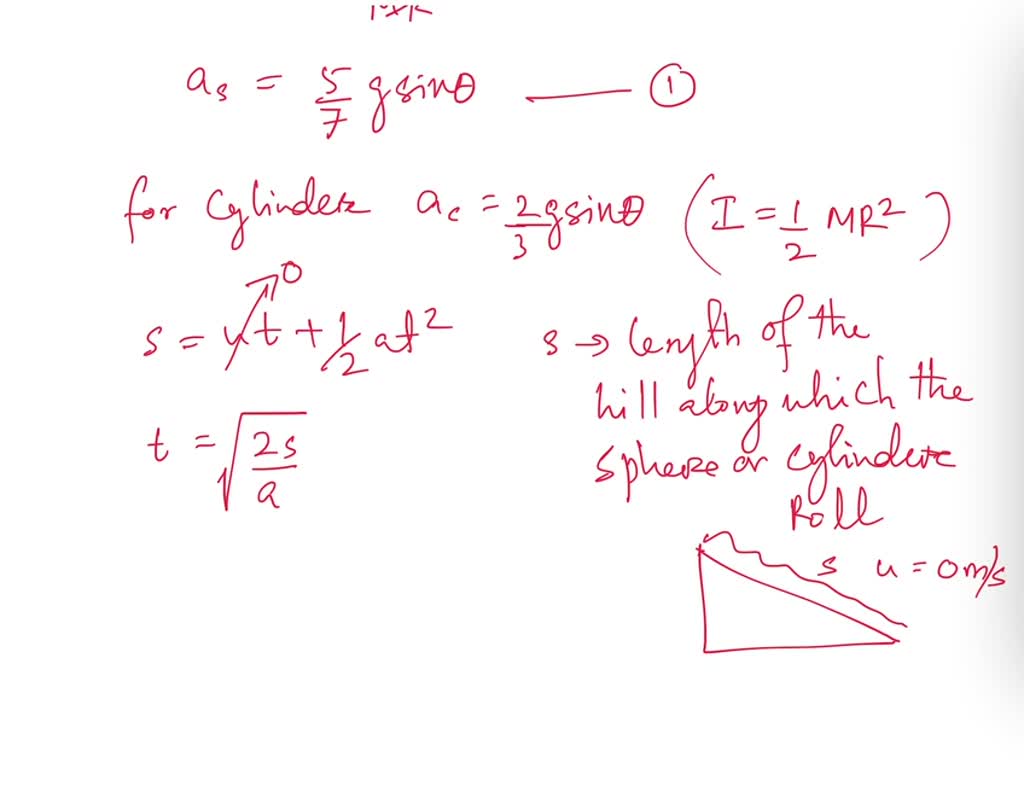 a_s = 5/7 g sinθ —— ①
for cylinder a_c = 2/3 g sinθ ( I = 1/2 MR² )
0
s = ut + 1/2 at²
t = √(2s/a)
s → length of the
hill along which the
sphere or cylinder
Roll
s u = 0 m/s